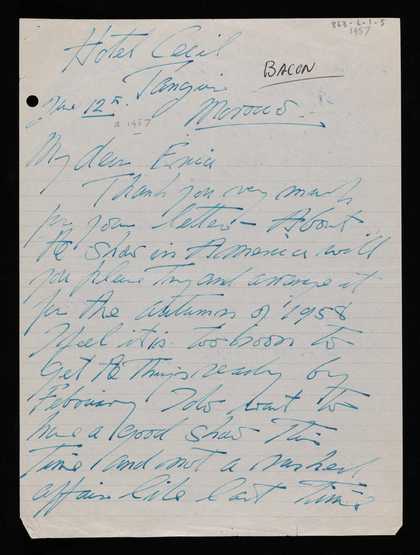 868-6-1-5
1957
Hotel Cecil
BACON
Tangier
June 12th.
Morocco.
a 1957
My dear Erica
Thank you very much
for your letter - About
the show in America will
you please try and arrange it
for the autumn of 1958
I feel it is too soon to
get the things ready by
February I do want to
have a good show this
time and not a rushed
affair like last time